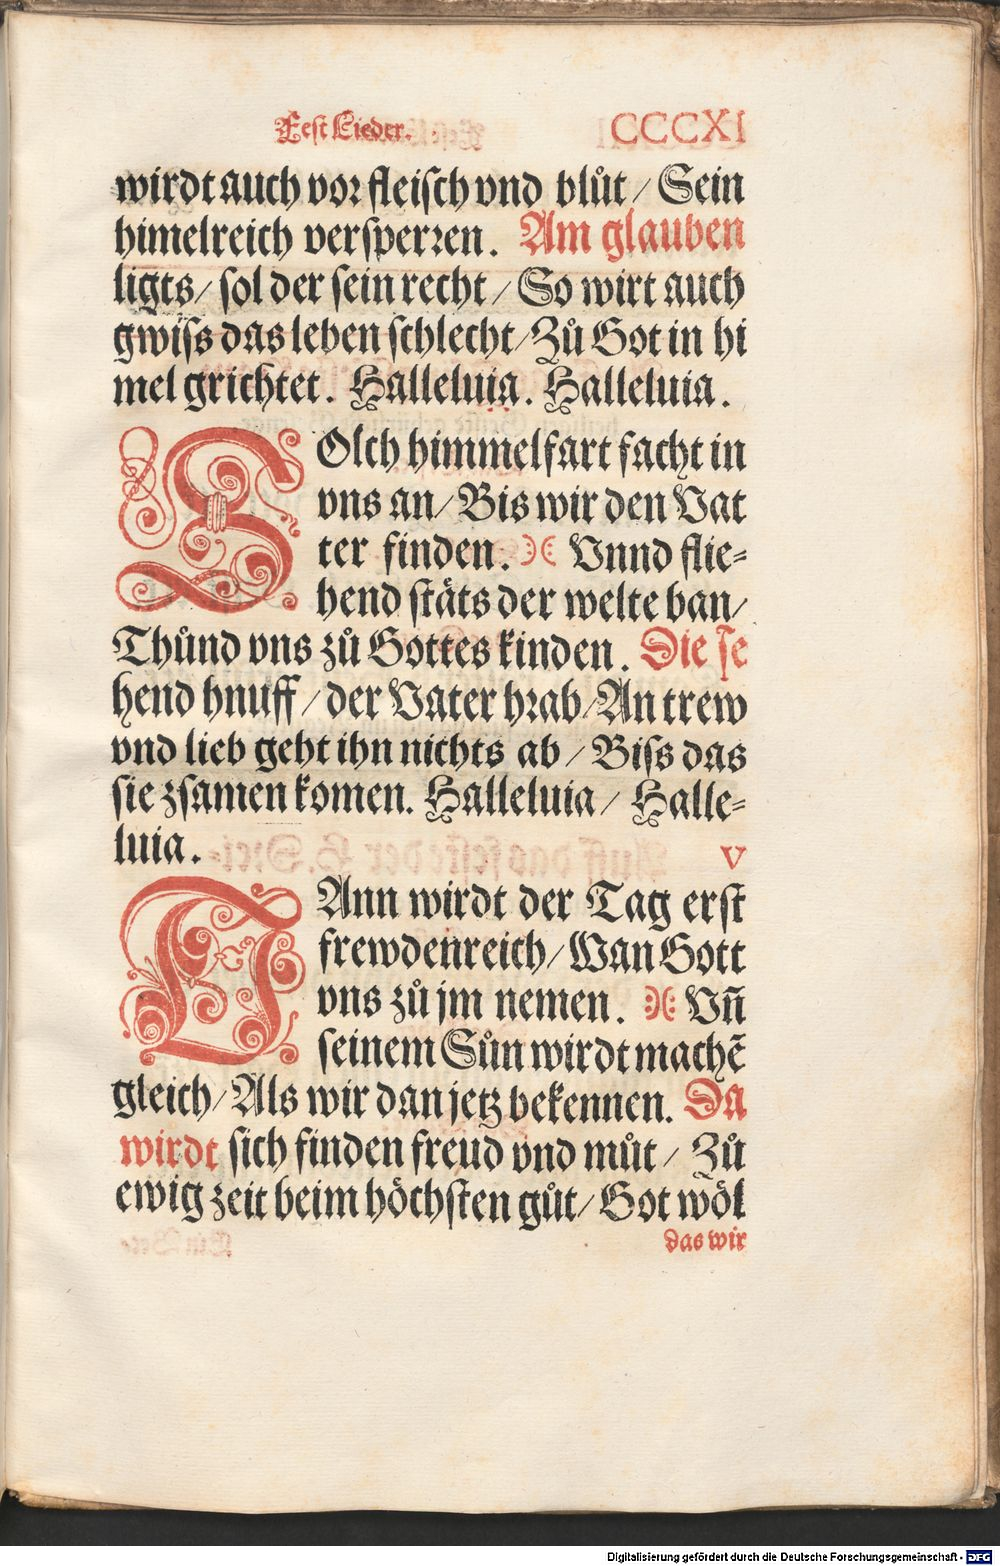 Fest Lieder. CCCXI
wirdt auch vor fleisch vnd blůt / Sein
himelreich versperren. Am glauben
ligts / sol der sein recht / So wirt auch
gwiss das leben schlecht / Zů Got in hi
mel grichtet. Halleluia. Halleluia.
SOlch himmelfart facht in
vns an / Bis wir den Vat
ter finden. Vnnd flie-
hend stäts der welte ban /
Thůnd vns zů Gottes kinden. Die se
hend hnuff / der Vater hrab / An trew
vnd lieb geht ihn nichts ab / Biss das
sie zsamen komen. Halleluia / Halle-
luia. V
DAnn wirdt der Tag erst
frewdenreich / Wan Gott
vns zů jm nemen. Vñ
seinem Sůn wirdt machē
gleich / Als wir dan jetz bekennen. Da
wirdt sich finden freud vnd můt / Zů
ewig zeit beim höchsten gůt / Got wöl
das wir
Digitalisierung gefördert durch die Deutsche Forschungsgemeinschaft - DFG